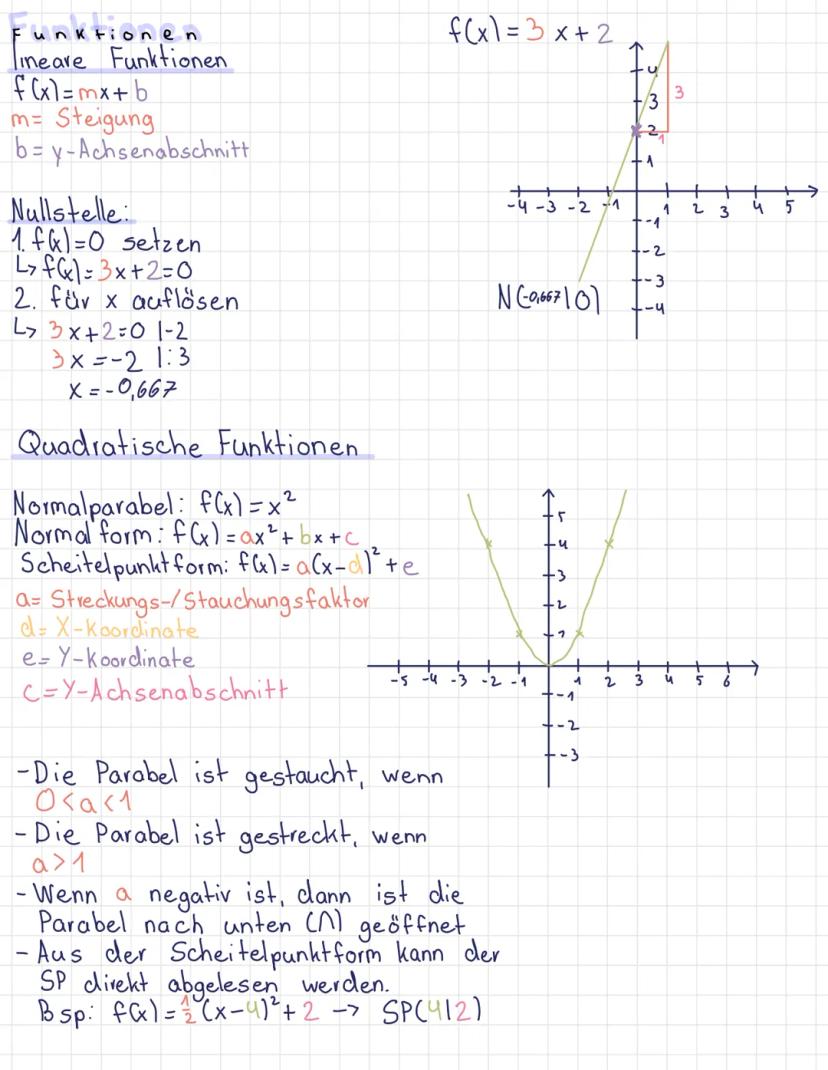 Funktionen
Funktionen
lineare Funktionen
f(x)=mx+b
m= Steigung
b= y-Achsenabschnitt
Nullstelle:
1. f(x)=0 setzen
↳ f(x)=3x+2=0
2. für x auflösen
↳ 3x+2=0 |-2
3x=-2 |:3
x=-0,667
f(x)=3x+2
4
3
3
2
1
1
-4 -3 -2 -1 1 2 3 4 5
-1
-2
-3
-4
N(-0,667|0)
Quadratische Funktionen
Normalparabel: f(x)=x²
Normalform: f(x)=ax²+bx+c
Scheitelpunktform: f(x)=a(x-d)²+e
a= Streckungs-/Stauchungsfaktor
d= X-Koordinate
e= Y-Koordinate
c=Y-Achsenabschnitt
5
4
3
2
-5 -4 -3 -2 -1 1 2 3 4 5 6
-1
-2
-3
-Die Parabel ist gestaucht, wenn
0<a<1
- Die Parabel ist gestreckt, wenn
a>1
- Wenn a negativ ist, dann ist die
Parabel nach unten (∩) geöffnet
- Aus der Scheitelpunktform kann der
SP direkt abgelesen werden.
Bsp: f(x)=½(x-4)²+2 -> SP(4|2)